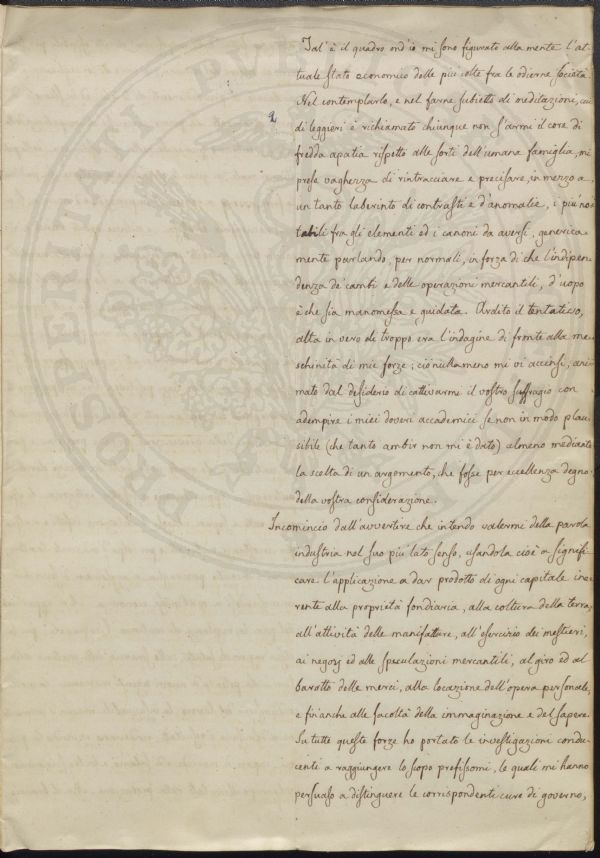 Tal' è il quadro ond'io mi sono figurato alla mente l'at-
tuale stato economico delle più colte fra le odierne società.
Nel contemplarlo, e nel farne subietto di meditazioni, cui
2
di leggieri è richiamato chiunque non s'armi il core di
fredda apatia rispetto alle sorti dell'umana famiglia, mi
prese vaghezza di rintracciare e precisare, in mezzo a
un tanto laberinto di contrasti e d'anomalie, i più no-
tabili fra gli elementi ed i canoni da aversi, generica-
mente parlando, per normali, in forza di che l'indipen-
denza de' cambi e delle operazioni mercantili, d'uopo
è che sia manomessa e guidata. Ardito il tentativo,
alta in vero di troppo era l'indagine di fronte alla me-
schinità di mie forze; ciò nullameno mi vi accinsi, ani-
mato dal desiderio di cattivarmi il vostro suffragio con
adempire i miei doveri accademici se non in modo plau-
sibile (che tanto ambir non mi è dato) almeno mediante
la scelta di un argomento, che fosse per eccellenza degno
della vostra considerazione.
Incomincio dall'avvertire che intendo valermi della parola
industria nel suo più lato senso, usandola cioè a signifi-
care l'applicazione a dar prodotto di ogni capitale ine-
rente alla proprietà fondiaria, alla coltura della terra,
all'attività delle manifatture, all'esercizio dei mestieri,
ai negozj ed alle speculazioni mercantili, al giro ed al
baratto delle merci, alla locazione dell'opera personale,
e fin'anche alle facoltà della immaginazione e del sapere.
Su tutte queste forze ho portato le investigazioni condu-
centi a raggiungere lo scopo prefissomi, le quali mi hanno
persuaso a distinguere le corrispondenti cure di governo,
PROSPERITATI PUBLIC